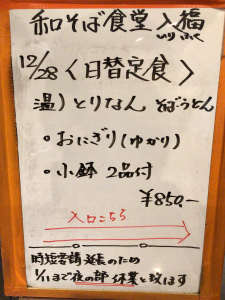 和そば食堂 入福
12/28〈日替定食〉
温)とりなん そばうどん
・おにぎり(ゆかり)
・小鉢 2品付
¥850.-
入口こちら
時短要請 延長のため
1/11まで夜の部 休業と致します